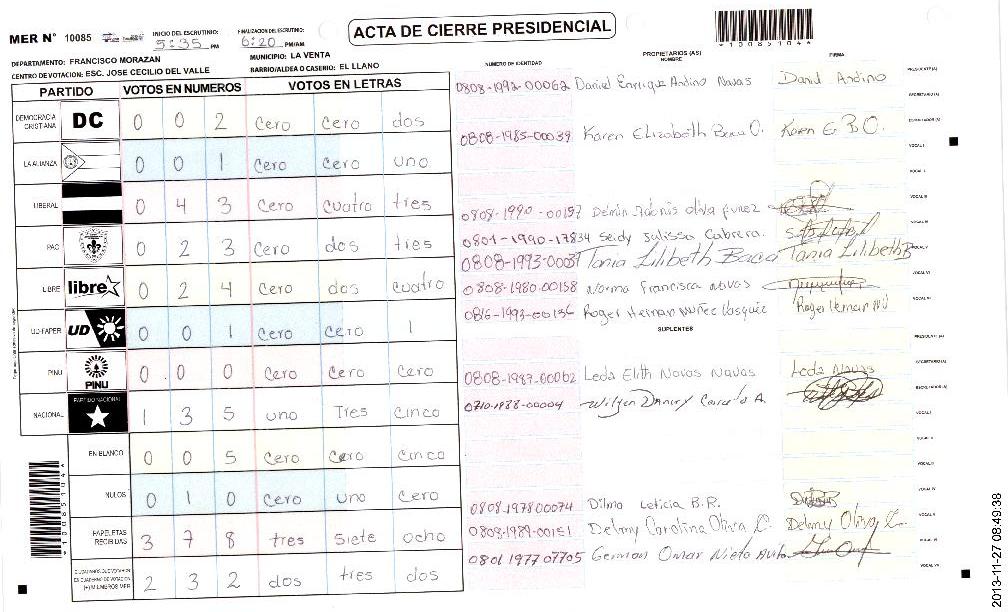 MER N° 10085
INICIO DEL ESCRUTINIO: 5:35 PM
FINALIZACION DEL ESCRUTINIO: 6:20 PM/AM
ACTA DE CIERRE PRESIDENCIAL
*10085104*
DEPARTAMENTO: FRANCISCO MORAZAN
MUNICIPIO: LA VENTA
CENTRO DE VOTACION: ESC. JOSE CECILIO DEL VALLE
BARRIO/ALDEA O CASERIO: EL LLANO
PARTIDO VOTOS EN NUMEROS VOTOS EN LETRAS
DEMOCRACIA CRISTIANA DC 0 0 2 cero cero dos
LA ALIANZA 0 0 1 cero cero uno
LIBERAL 0 4 3 cero cuatro tres
PAC 0 2 3 cero dos tres
LIBRE libre 0 2 4 cero dos cuatro
UD-FAPER UD 0 0 1 cero cero 1
PINU PINU 0 0 0 cero cero cero
NACIONAL PARTIDO NACIONAL 1 3 5 uno Tres cinco
EN BLANCO 0 0 5 cero cero cinco
NULOS 0 1 0 cero uno cero
PAPELETAS RECIBIDAS 3 7 8 tres siete ocho
CIUDADANOS QUE VOTARON EN CUADERNO DE VOTACION (+) MIEMBROS MER 2 3 2 dos tres dos
NUMERO DE IDENTIDAD
PROPIETARIOS (AS)
NOMBRE
FIRMA
0808-1992-00062 Daniel Enrique Andino Navas Daniel Andino
PRESIDENTE(A)
SECRETARIO(A)
0808-1985-00039 Karen Elizabeth Baca O. Karen E B O.
ESCRUTADOR (A)
VOCAL I
VOCAL II
0808-1990-00157
VOCAL III
0801-1990-17834 Seidy Julissa Cabrera.
VOCAL IV
0808-1993-00037 Tania Lilibeth Baca Tania Lilibeth B
VOCAL V
0808-1980-00158 Norma Francisca Navas
VOCAL VI
0816-1993-00156 Roger Hernan Nuñez Vasquez Roger Hernan
SUPLENTES
PRESIDENTE(A)
SECRETARIO(A)
0808-1987-00062 Leda Elith Navas Navas Leda Navas
ESCRUTADOR (A)
0710-1988-00004
VOCAL I
VOCAL II
VOCAL III
VOCAL IV
0808-197800074 Dilma Leticia B.R.
VOCAL V
0808-1989-00151 Delmy Carolina Oliva C. Delmy Oliva C.
VOCAL VI
0801 1977 07705 German Omar Nieto
VOCAL VII
*10085104*
2013-11-27 08:49:38